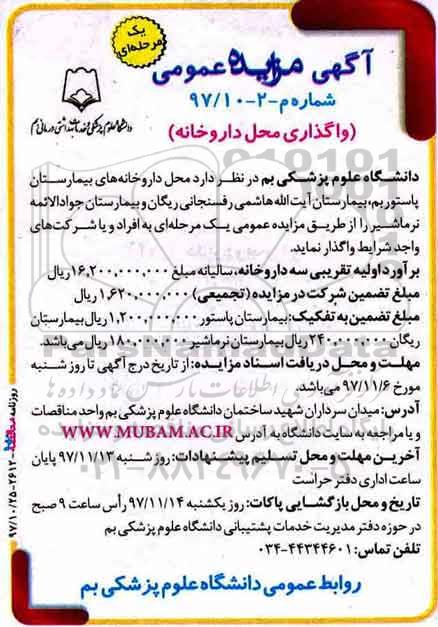 یک
مرحله‌ای
آگهی مزایده عمومی
شماره م-۲-۹۷/۱۰
(واگذاری محل داروخانه)
دانشگاه علوم پزشکی و خدمات بهداشتی درمانی بم
دانشگاه علوم پزشکی بم در نظر دارد محل داروخانه‌های بیمارستان
پاستور بم، بیمارستان آیت الله هاشمی رفسنجانی ریگان و بیمارستان جوادالائمه
نرماشیر را از طریق مزایده عمومی یک مرحله‌ای به افراد و یا شرکت‌های
واجد شرایط واگذار نماید.
برآورد اولیه تقریبی سه داروخانه، سالیانه مبلغ ۱۶,۲۰۰,۰۰۰,۰۰۰ ریال
مبلغ تضمین شرکت در مزایده (تجمیعی) ۱,۶۲۰,۰۰۰,۰۰۰ ریال
مبلغ تضمین به تفکیک: بیمارستان پاستور ۱,۲۰۰,۰۰۰,۰۰۰ ریال بیمارستان
ریگان ۲۴۰,۰۰۰,۰۰۰ ریال بیمارستان نرماشیر ۱۸۰,۰۰۰,۰۰۰ ریال می‌باشد.
مهلت و محل دریافت اسناد مزایده: از تاریخ درج آگهی تا روز شنبه
مورخ ۹۷/۱۱/۶ می‌باشد.
آدرس: میدان سرداران شهید ساختمان دانشگاه علوم پزشکی بم واحد مناقصات
و یا مراجعه به سایت دانشگاه به آدرس WWW.MUBAM.AC.IR
آخرین مهلت و محل تسلیم پیشنهادات: روز شنبه ۹۷/۱۱/۱۳ پایان
ساعت اداری دفتر حراست
تاریخ و محل بازگشایی پاکات: روز یکشنبه ۹۷/۱۱/۱۴ رأس ساعت ۹ صبح
در حوزه دفتر مدیریت خدمات پشتیبانی دانشگاه علوم پزشکی بم
تلفن تماس: ۰۳۴-۴۴۳۴۴۶۰۱
روابط عمومی دانشگاه علوم پزشکی بم
ParsNamadData
۰۲۱-۸۸۳۴۹۶۷۰-۵
روزنامه
۹۷/۱۰/۲۵-۴۶۱۲